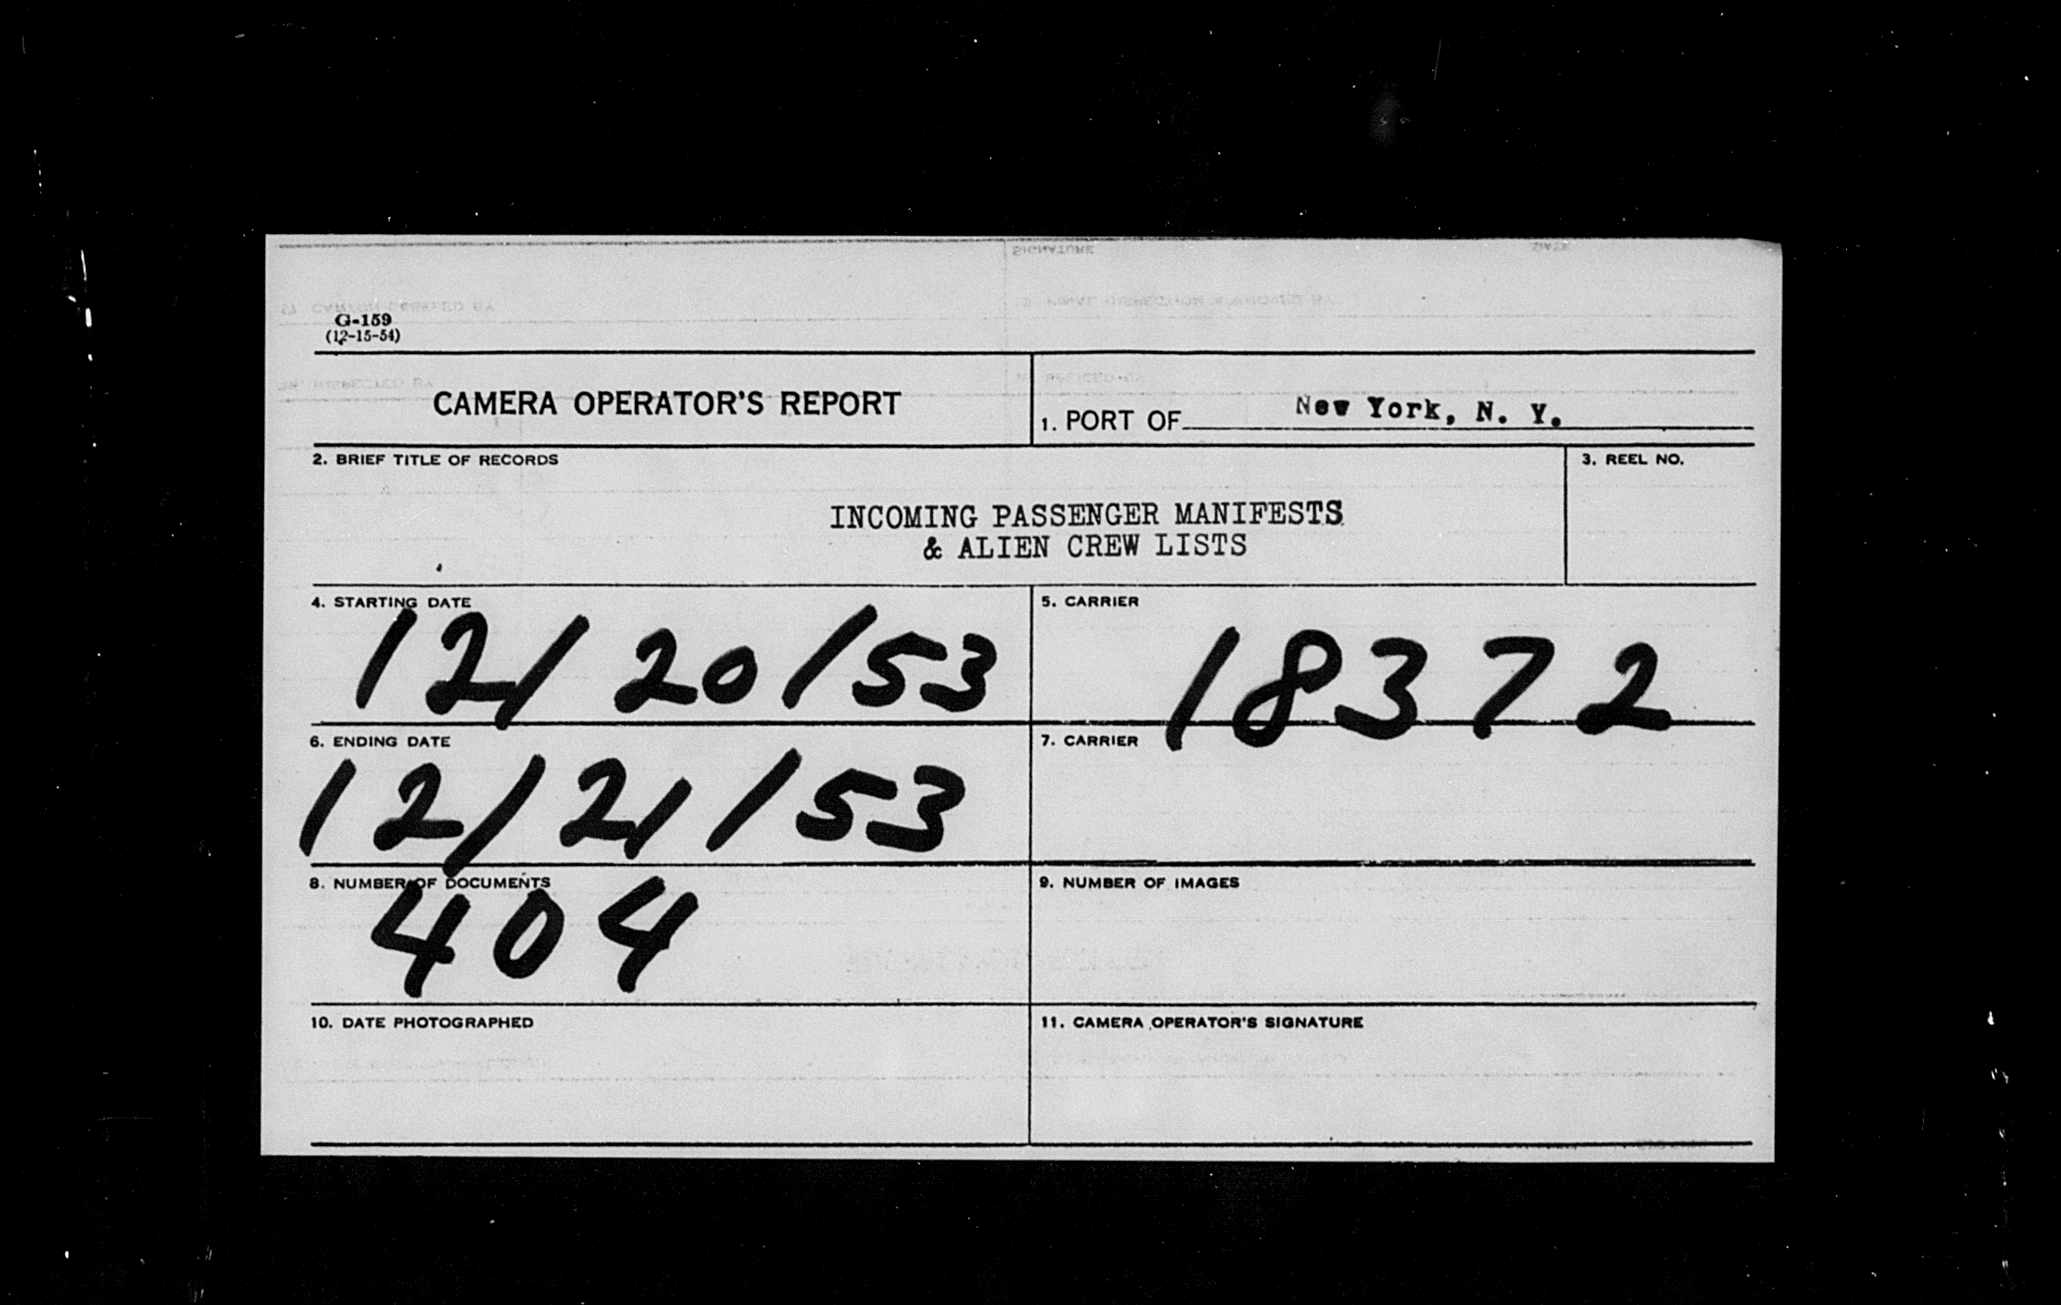 G-159
(12-15-54)
CAMERA OPERATOR'S REPORT
1. PORT OF New York, N. Y.
2. BRIEF TITLE OF RECORDS
3. REEL NO.
INCOMING PASSENGER MANIFESTS
& ALIEN CREW LISTS
4. STARTING DATE
12/20/53
5. CARRIER
18372
6. ENDING DATE
12/21/53
7. CARRIER
8. NUMBER OF DOCUMENTS
404
9. NUMBER OF IMAGES
10. DATE PHOTOGRAPHED
11. CAMERA OPERATOR'S SIGNATURE